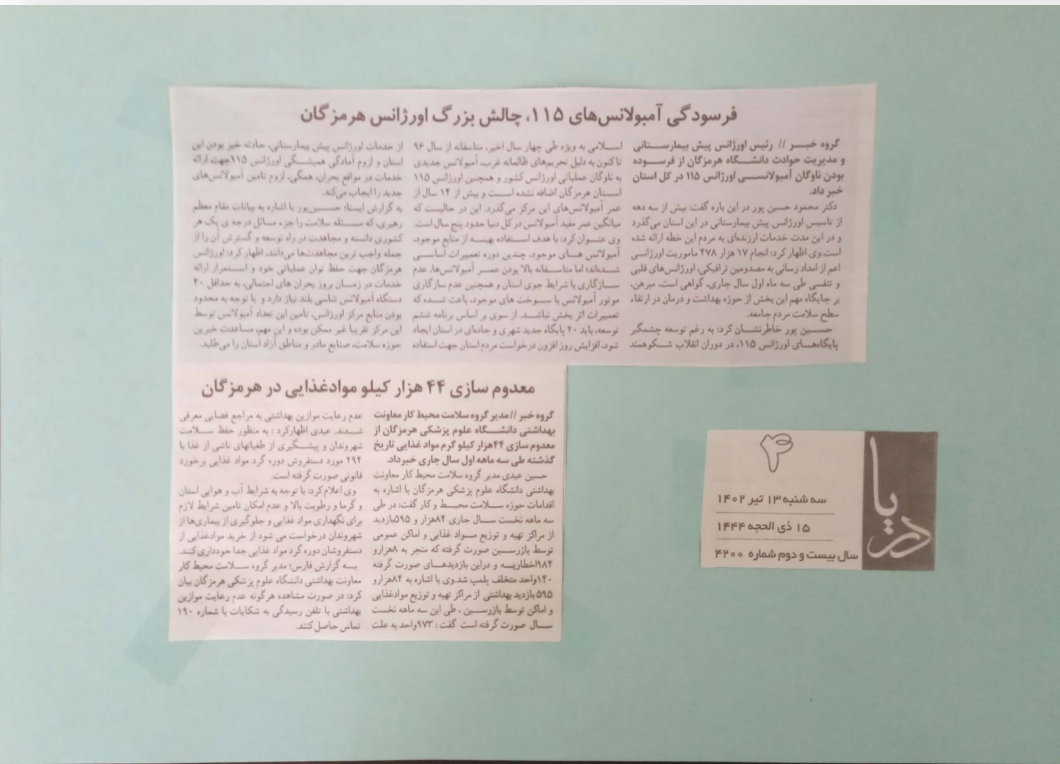 فرسودگی آمبولانس‌های ۱۱۵، چالش بزرگ اورژانس هرمزگان
گروه خبر // رئیس اورژانس پیش بیمارستانی
و مدیریت حوادث دانشگاه هرمزگان از فرسوده
بودن ناوگان آمبولانسی اورژانس ۱۱۵ در کل استان
خبر داد.
دکتر محمود حسین پور در این باره گفت: بیش از سه دهه
از تاسیس اورژانس پیش بیمارستانی در این استان می‌گذرد
و در این مدت خدمات ارزنده‌ای به مردم این خطه ارائه شده
است.وی اظهار کرد: انجام ۱۷ هزار ۴۷۸ ماموریت اورژانسی
اعم از امداد رسانی به مصدومین ترافیکی، اورژانس‌های قلبی
و تنفسی طی سه ماه اول سال جاری، گواهی است، مبرهن،
بر جایگاه مهم این بخش از حوزه بهداشت و درمان در ارتقاء
سطح سلامت مردم جامعه.
حسین پور خاطرنشان کرد: به رغم توسعه چشمگیر
پایگاه‌های اورژانس ۱۱۵، در دوران انقلاب شکوهمند
اسلامی به ویژه طی چهار سال اخیر، متاسفانه از سال ۹۶
تاکنون به دلیل تحریم‌های ظالمانه غرب، آمبولانس جدیدی
به ناوگان عملیاتی اورژانس کشور و همچنین اورژانس ۱۱۵
استان هرمزگان اضافه نشده است و بیش از ۱۴ سال از
عمر آمبولانس‌های این مرکز می‌گذرد. این در حالیست که
میانگین عمر مفید آمبولانس در کل دنیا حدود پنج سال است.
وی عنوان کرد: با هدف استفاده بهینه از منابع موجود،
آمبولانس های موجود، چندین دوره تعمیرات اساسی
شده‌اند؛ اما متاسفانه بالا بودن عمر آمبولانس‌ها، عدم
سازگاری با شرایط جوی استان و همچنین عدم سازگاری
موتور آمبولانس با سوخت های موجود، باعث شده که
تعمیرات اثر بخش نباشد. از سوی بر اساس برنامه ششم
توسعه، باید ۲۰ پایگاه جدید شهری و جاده‌ای در استان ایجاد
شود، افزایش روز افزون درخواست مردم استان جهت استفاده
از خدمات اورژانس پیش بیمارستانی، حادثه خیز بودن این
استان و لزوم آمادگی همیشگی اورژانس ۱۱۵جهت ارائه
خدمات در مواقع بحران، همگی، لزوم تامین آمبولانس‌های
جدید را ایجاب می‌کند.
به گزارش ایسنا، حسین‌پور با اشاره به بیانات مقام معظم
رهبری، که مسئله سلامت را جزء مسائل درجه ی یک هر
کشوری دانسته و مجاهدت در راه توسعه و گسترش آن را از
جمله واجب ترین مجاهدت‌ها می‌دانند، اظهار کرد: اورژانس
هرمزگان جهت حفظ توان عملیاتی خود و استمرار ارائه
خدمات در زمان بروز بحران های احتمالی، به حداقل ۴۰
دستگاه آمبولانس شاسی بلند نیاز دارد و با توجه به محدود
بودن منابع مرکز اورژانس، تامین این تعداد آمبولانس توسط
این مرکز تقریبا غیر ممکن بوده و این مهم، مساعدت خیرین
حوزه سلامت، صنایع مادر و مناطق آزاد استان را می‌طلبد.
معدوم سازی ۴۴ هزار کیلو موادغذایی در هرمزگان
گروه خبر //مدیر گروه سلامت محیط کار معاونت
بهداشتی دانشگاه علوم پزشکی هرمزگان از
معدوم سازی ۴۴هزار کیلو گرم مواد غذایی تاریخ
گذشته طی سه ماهه اول سال جاری خبرداد.
حسین عبدی مدیر گروه سلامت محیط کار معاونت
بهداشتی دانشگاه علوم پزشکی هرمزگان با اشاره به
اقدامات حوزه سلامت محیط و کار گفت: در طی
سه ماهه نخست سال جاری ۸۴هزار و ۵۹۵بازدید
از مراکز تهیه و توزیع مواد غذایی و اماکن عمومی
توسط بازرسین صورت گرفته که منجر به ۸هزارو
۹۸۴اخطاریه و دراین بازدیدهای صورت گرفته
۱۴۰واحد متخلف پلمپ شد.وی با اشاره به ۸۴هزارو
۵۹۵بازدید بهداشتی از مراکز تهیه و توزیع موادغذایی
و اماکن توسط بازرسین ، طی این سه ماهه نخست
سال صورت گرفته است گفت : ۹۷۳واحد به علت
عدم رعایت موازین بهداشتی به مراجع قضایی معرفی
شدند. عبدی اظهارکرد : به منظور حفظ سلامت
شهروندان و پیشگیری از طغیانهای ناشی از غذا با
۲۹۴ مورد دستفروش دوره گرد مواد غذایی برخورد
قانونی صورت گرفته است.
وی اعلام کرد: با توجه به شرایط آب و هوایی استان
و گرما و رطوبت بالا و عدم امکان تامین شرایط لازم
برای نگهداری مواد غذایی و جلوگیری از بیماری‌ها از
شهروندان درخواست می شود از خرید موادغذایی از
دستفروشان دوره گرد مواد غذایی جدا خودداری‌کنند.
به گزارش فارس؛ مدیر گروه سلامت محیط کار
معاونت بهداشتی دانشگاه علوم پزشکی هرمزگان بیان
کرد: در صورت مشاهده هرگونه عدم رعایت موازین
بهداشتی با تلفن رسیدگی به شکایات با شماره ۱۹۰
تماس حاصل کنند.
دریا
۳
سه شنبه ۱۳ تیر ۱۴۰۲
۱۵ ذی الحجه ۱۴۴۴
سال بیست و دوم شماره ۴۲۰۰